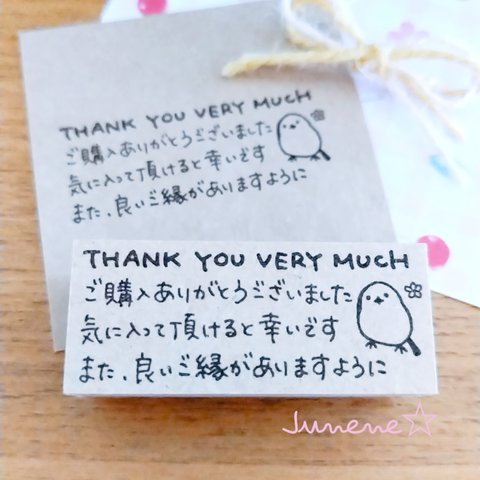 THANK YOU VERY MUCH
ご購入ありがとうございました
気に入って頂けると幸いです
また、良いご縁がありますように
THANK YOU VERY MUCH
ご購入ありがとうございました
気に入って頂けると幸いです
また、良いご縁がありますように
Junene☆